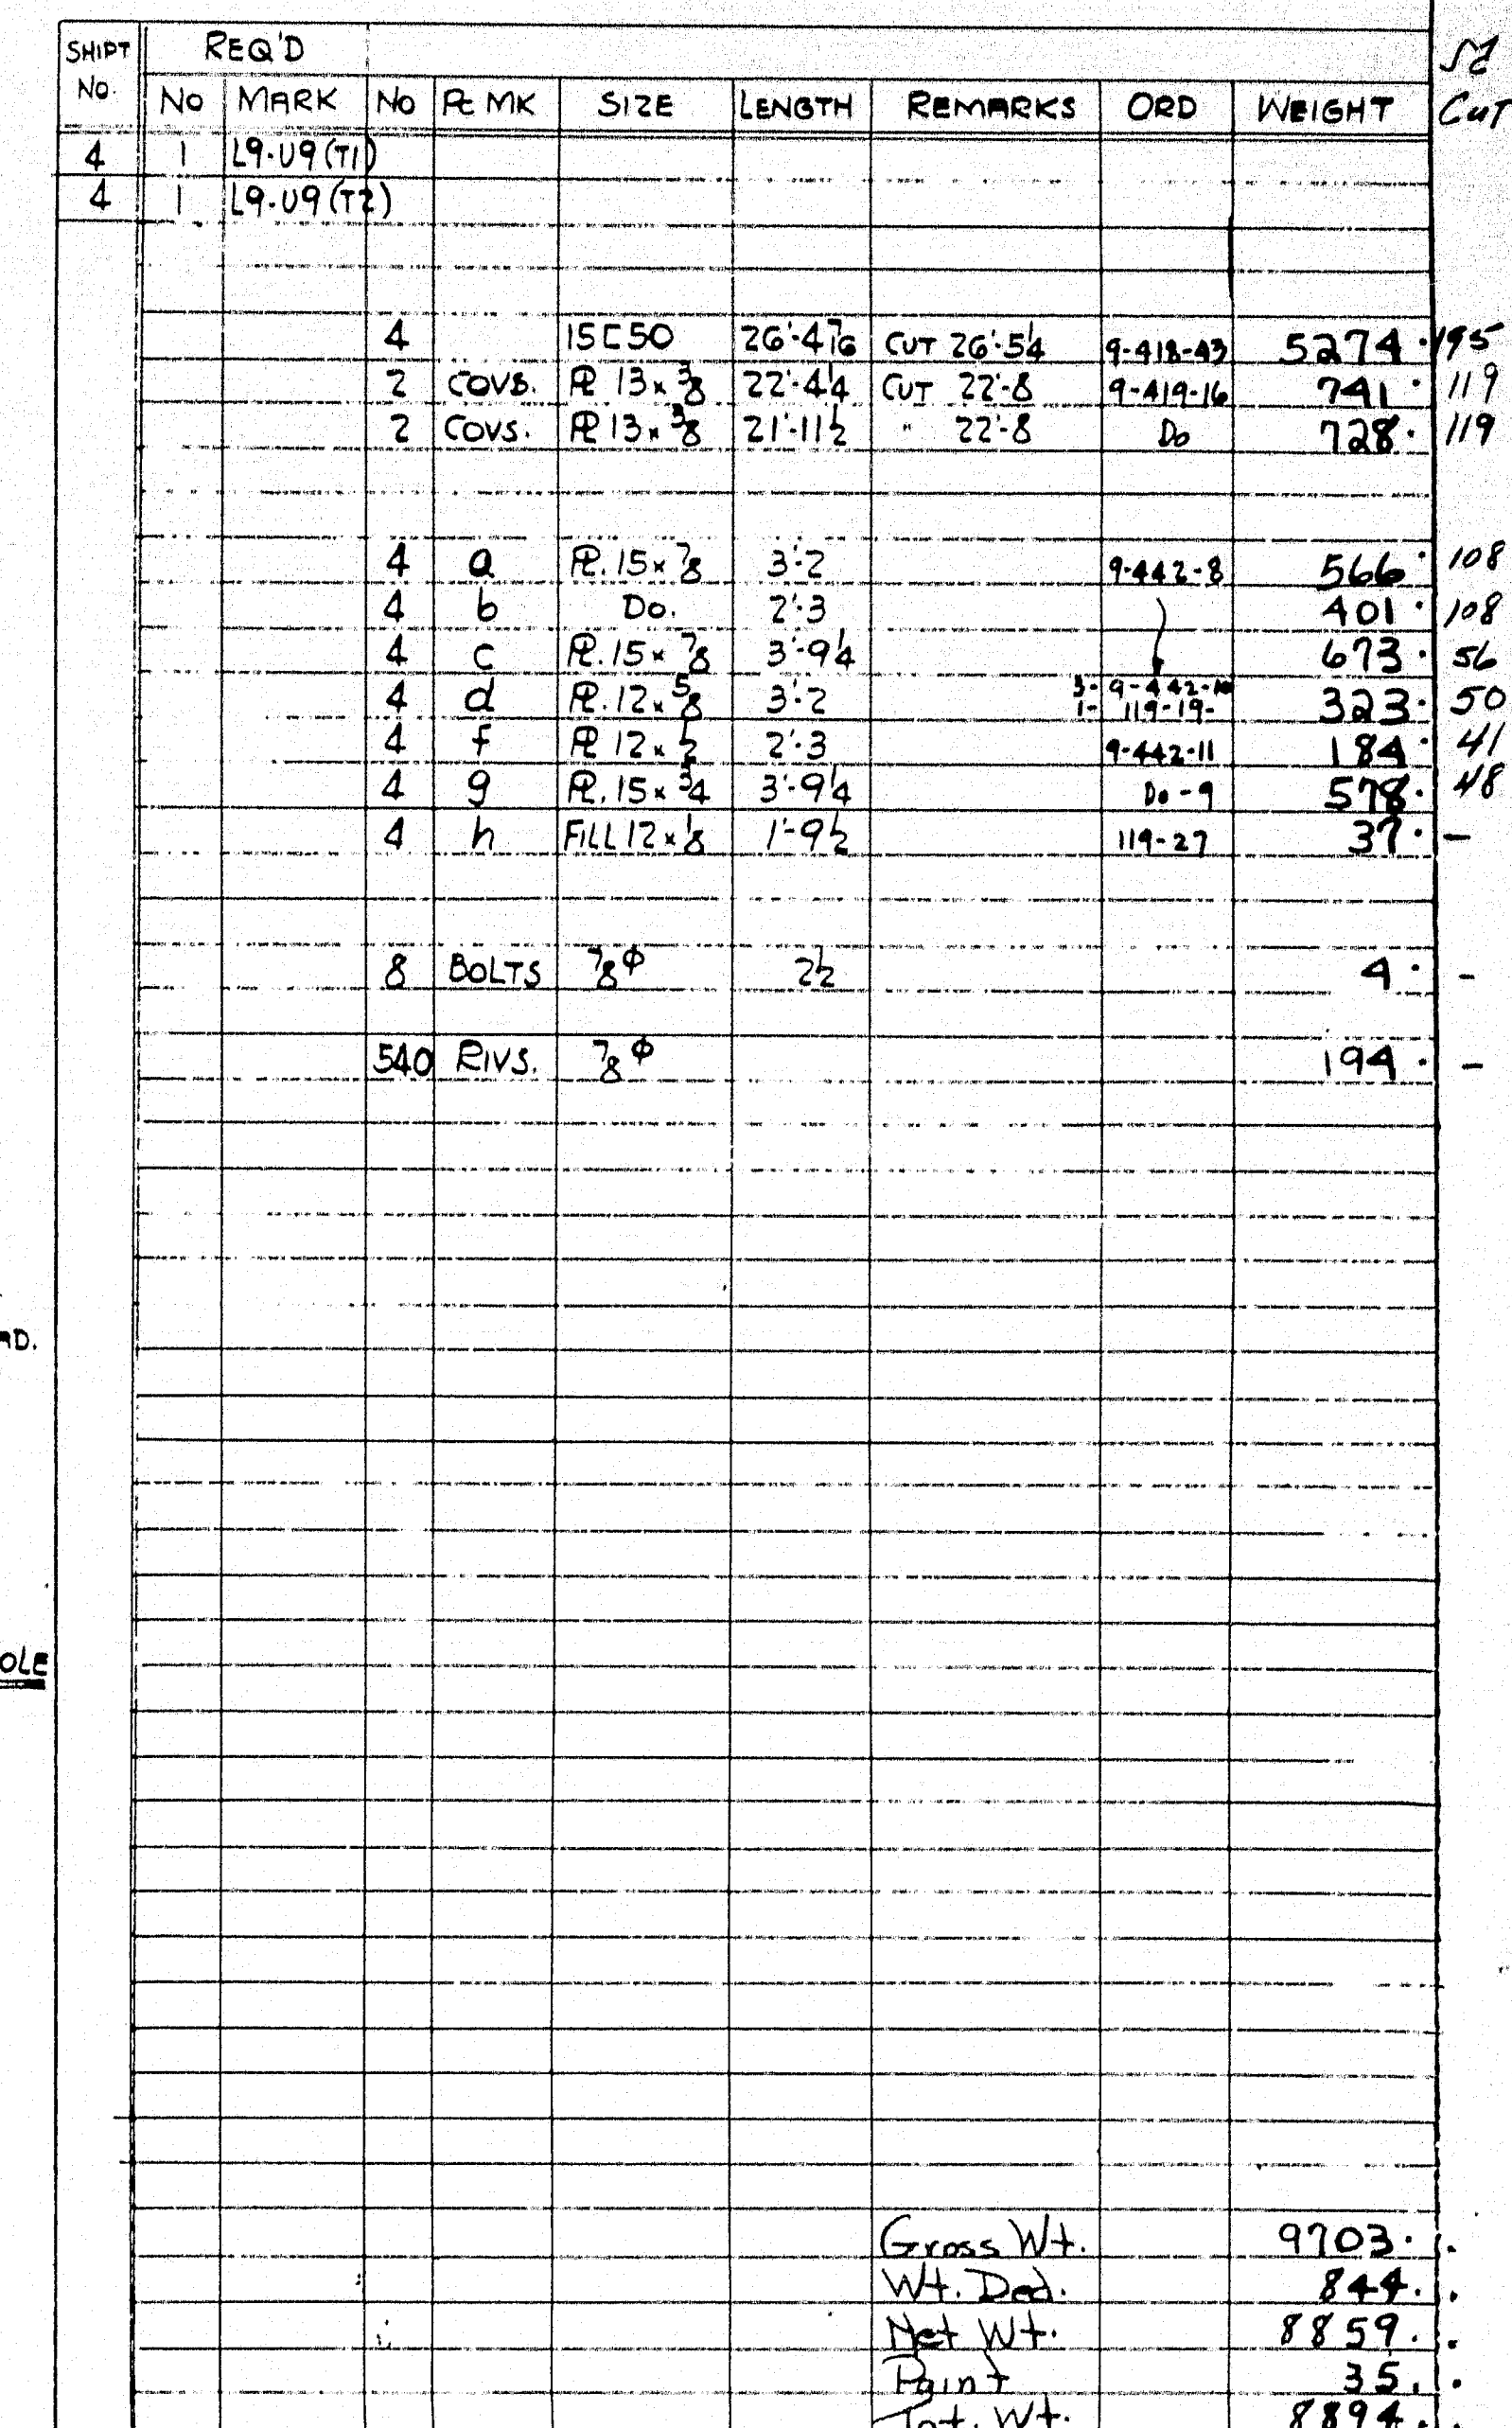 SHIPT No. REQ'D
No MARK No PC MK SIZE LENGTH REMARKS ORD WEIGHT Cut
4 1 L9-U9 (T1)
4 1 L9-U9 (T2)
4 15 [ 50 26'-4 7/16 CUT 26'-5 1/4 9-418-43 5274 195
2 COVS. PL 13 x 3/8 22'-4 1/4 CUT 22'-8 9-419-16 741 119
2 COVS. PL 13 x 3/8 21'-11 1/2 " 22'-8 Do 728 119
4 a PL. 15 x 7/8 3'-2 9-442-8 566 108
4 b Do. 2'-3 401 108
4 c PL. 15 x 7/8 3'-9 1/4 673 56
4 d PL. 12 x 5/8 3'-2 3- 9-442-10 1- 119-19- 323 50
4 f PL 12 x 1/2 2'-3 9-442-11 184 41
4 g PL. 15 x 3/4 3'-9 1/4 Do-9 578 48
4 h FILL 12 x 1/8 1'-9 1/2 119-27 37 -
8 BOLTS 7/8 φ 2 1/2 4 -
540 RIVS. 7/8 φ 194 -
RD.
OLE
Gross Wt. 9703.
Wt. Ded. 844.
Net Wt. 8859.
Paint 35.
Tot. Wt. 8894.